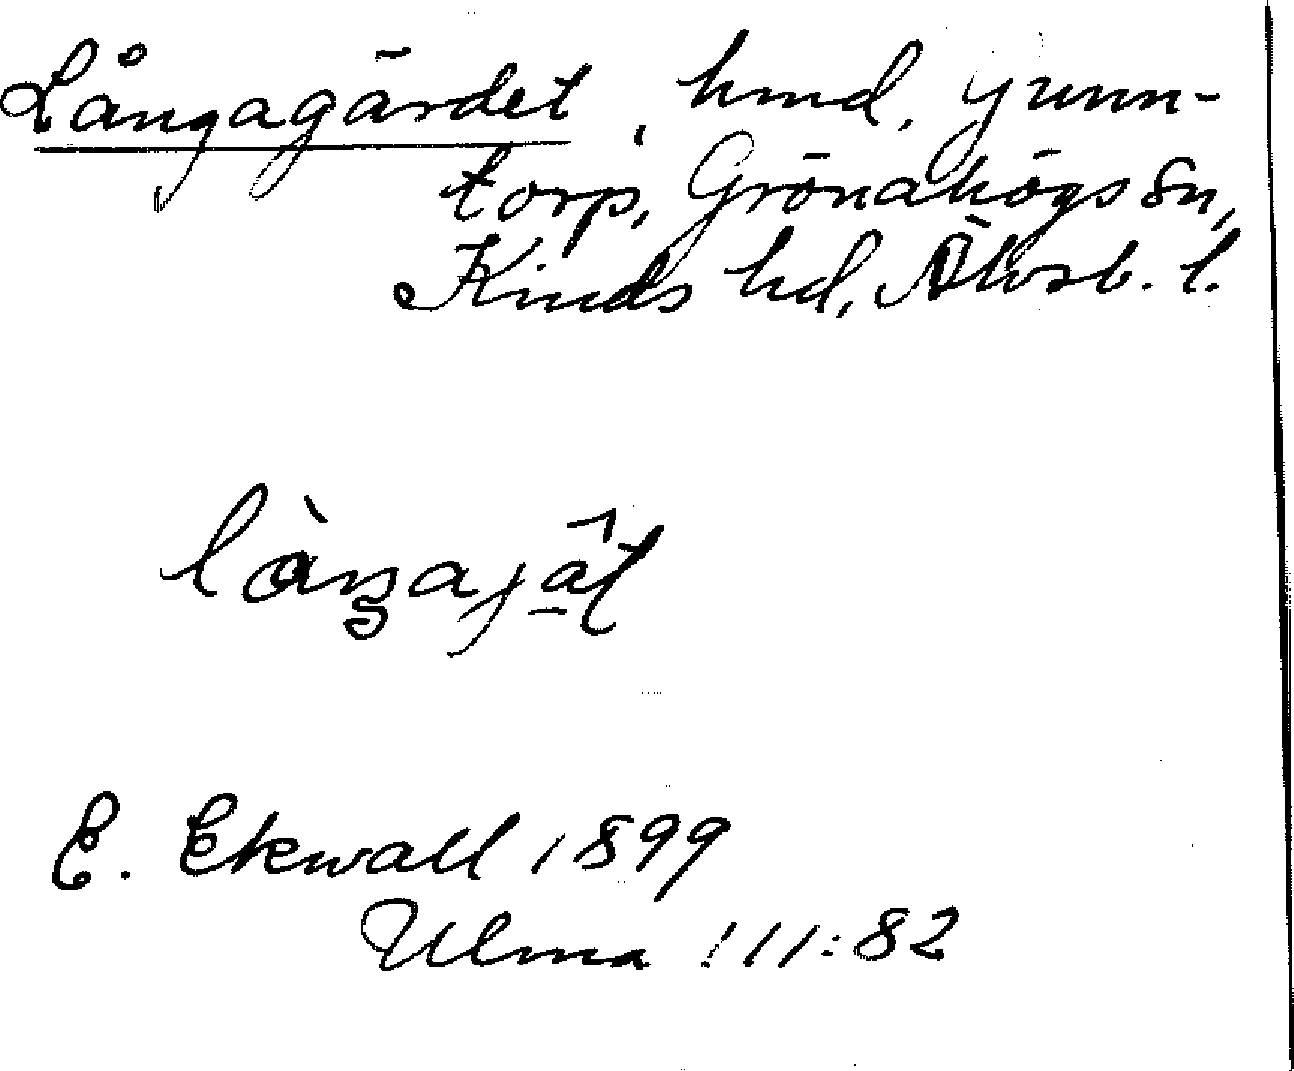 Långagärdet, hmd, Junn-
torp, Grönahögs sn,
Kinds hd, Älvsb. l.
E. Ekwall 1899
Ulma 111:82